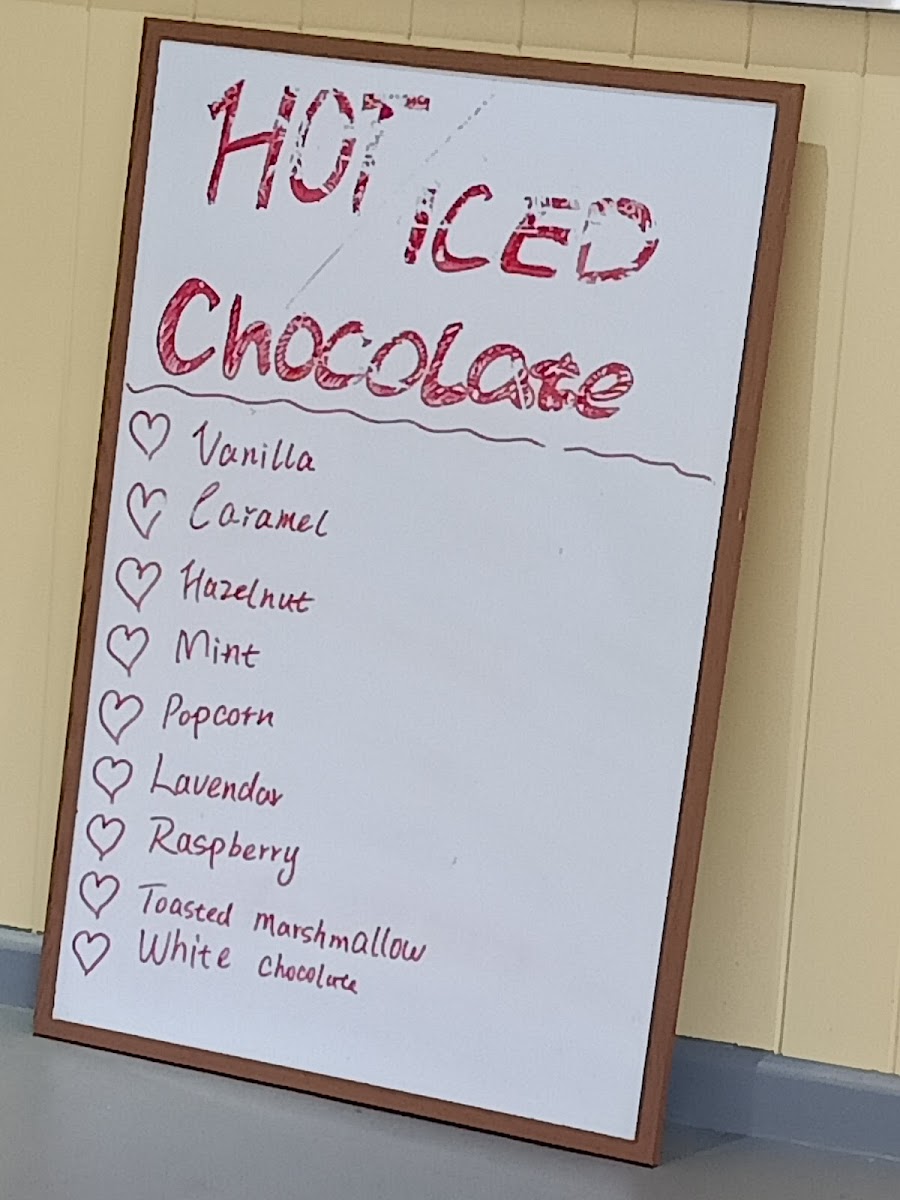 HOT
ICED
Chocolate
Vanilla
Caramel
Hazelnut
Mint
Popcorn
Lavendar
Raspberry
Toasted marshmallow
White chocolate